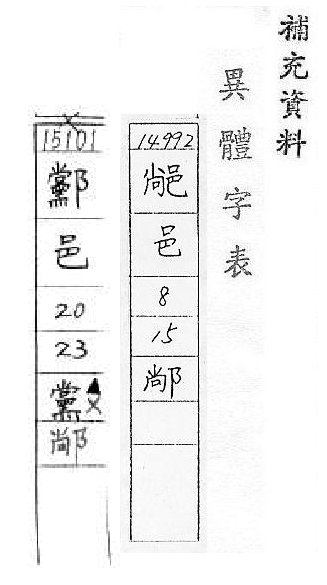 補充資料
異體字表
14992
邑
8
15
䣊
15101
䣣
邑
20
23
黨
䣊